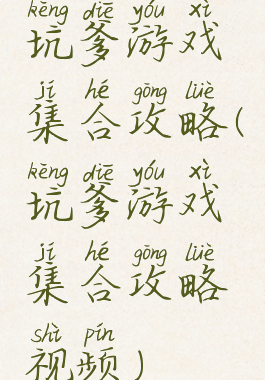 kēng diē yóu xì
坑爹游戏
jí hé gōng lüè
集合攻略(
kēng diē yóu xì
坑爹游戏
jí hé gōng lüè
集合攻略
shì pín
视频)